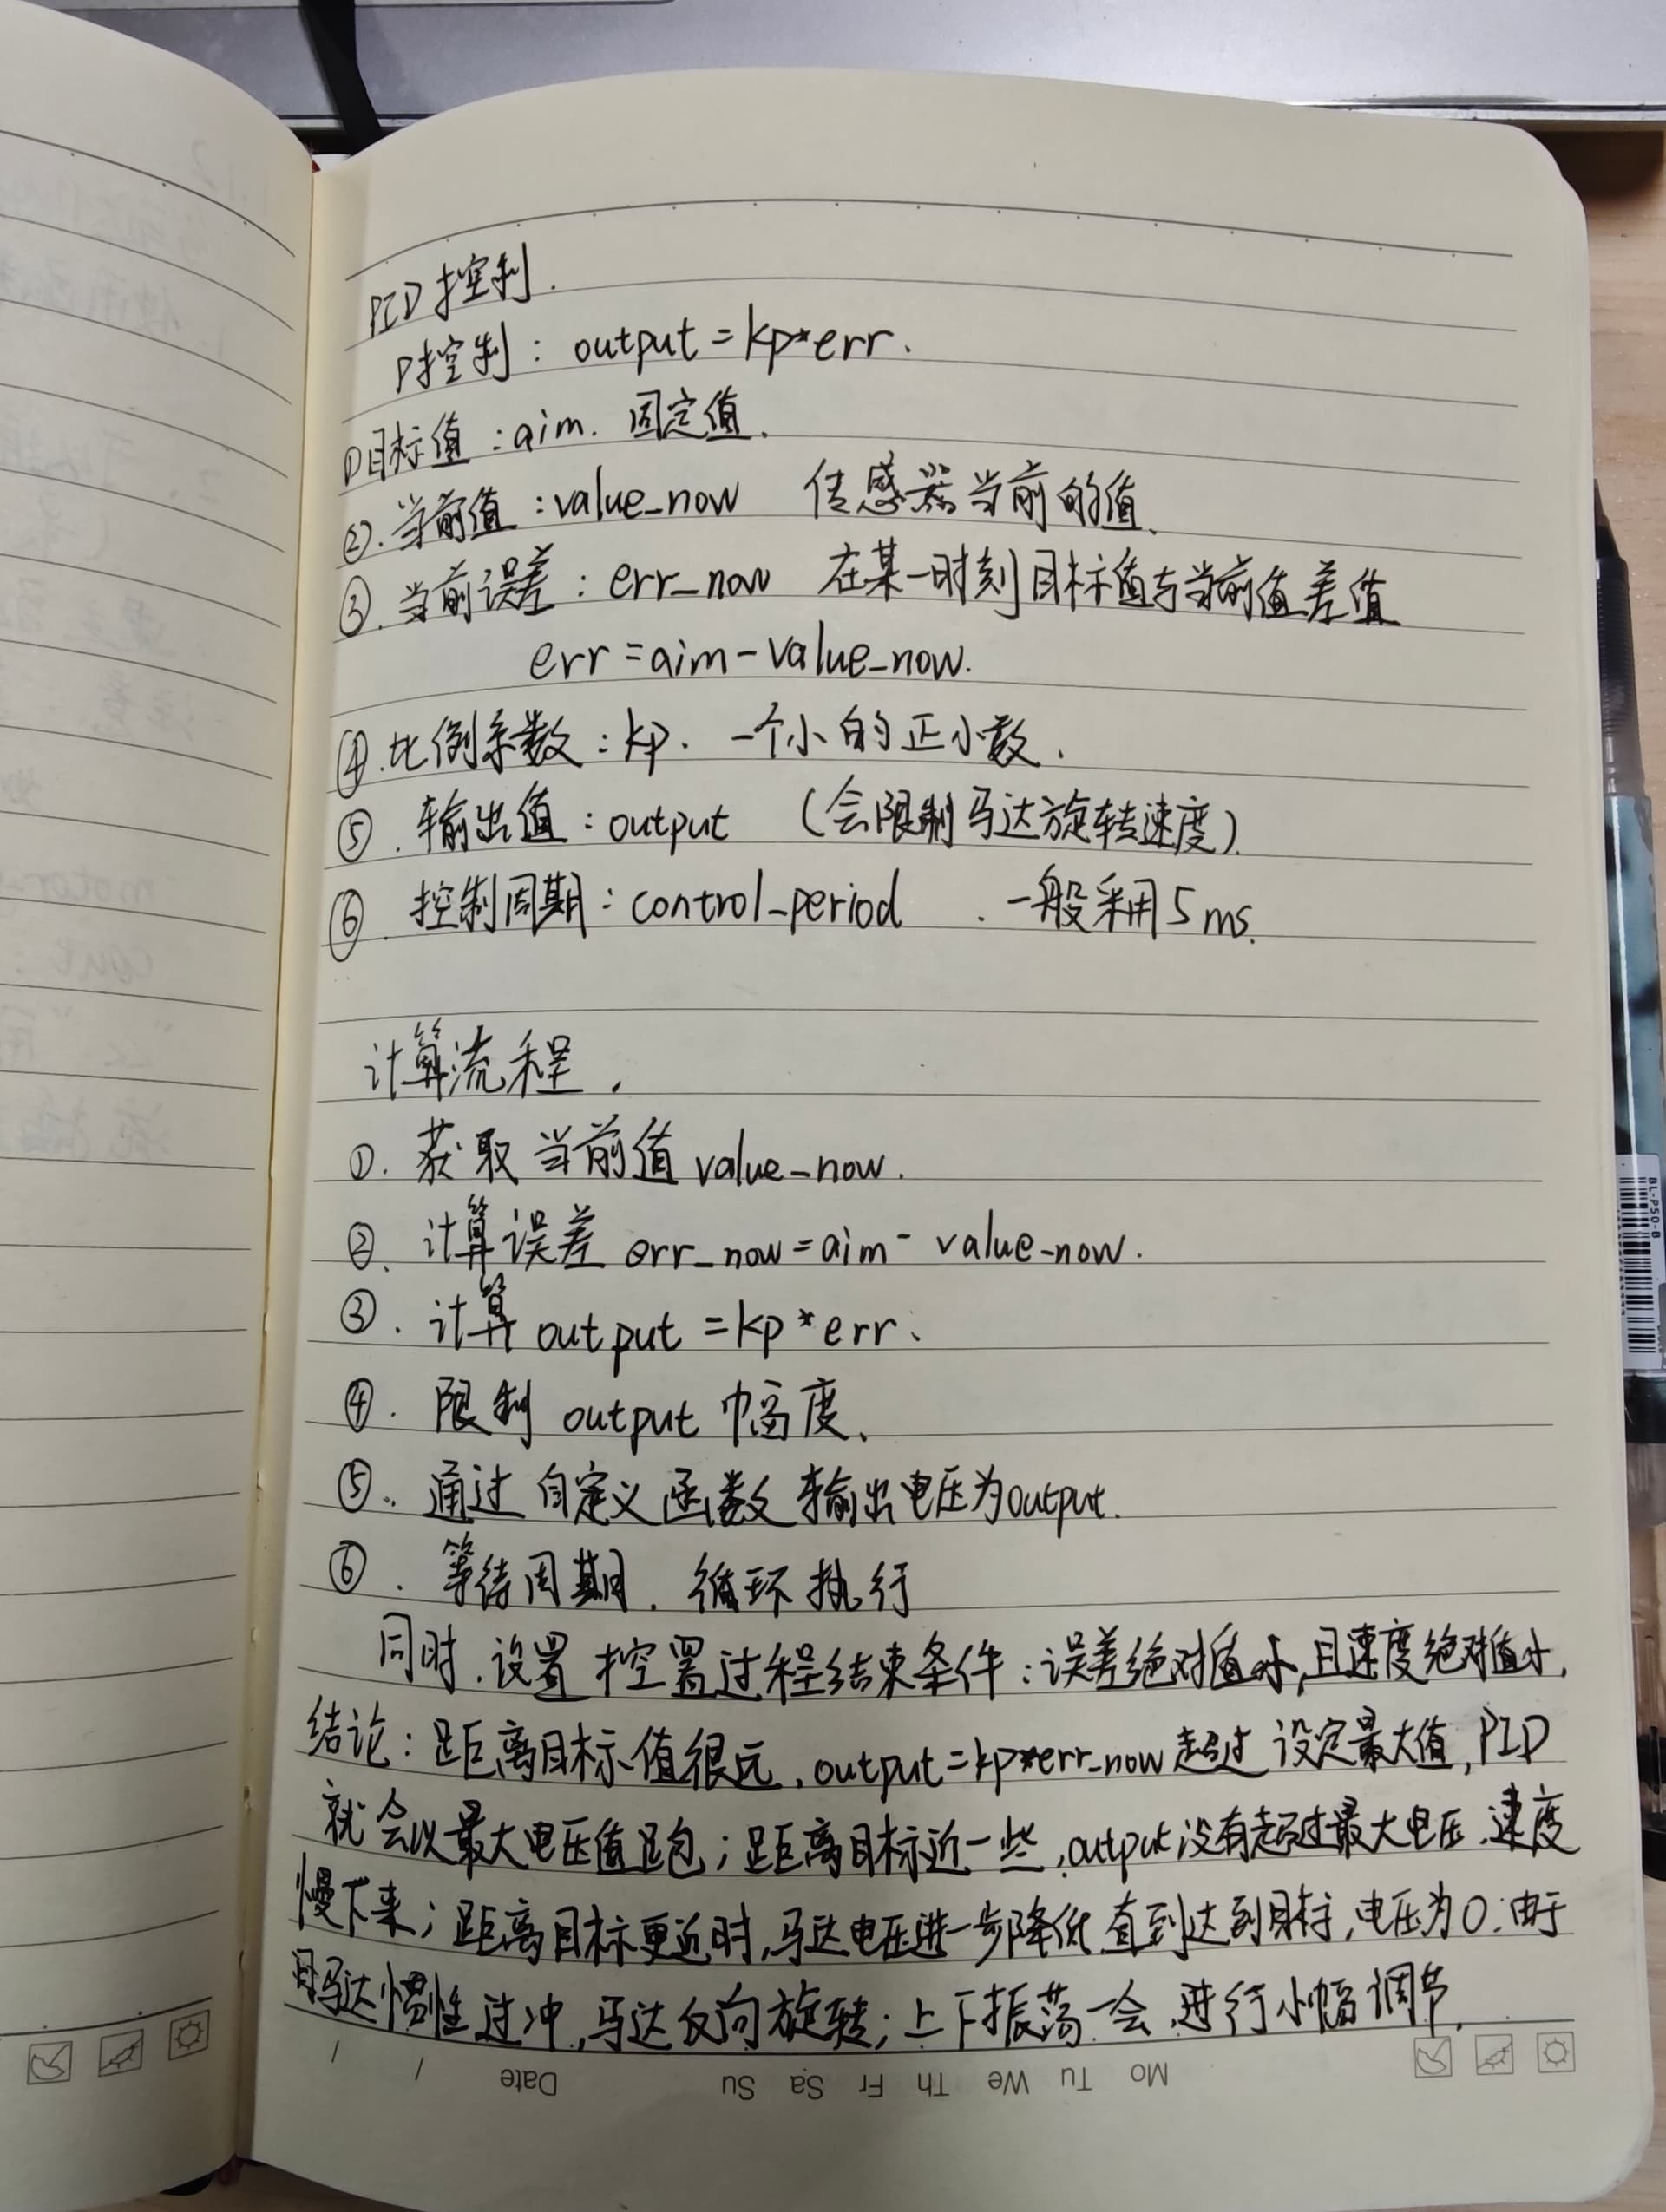 PID控制.
P控制: output=kp*err.
①目标值:aim. 固定值.
②.当前值:value_now 传感器当前的值.
③.当前误差: err_now 在某一时刻目标值与当前值差值
err=aim-value_now.
④.比例系数:kp. 一个小的正小数.
⑤.输出值:output (会限制马达旋转速度).
⑥.控制周期:control_period .一般采用5ms.
计算流程.
①.获取当前值value_now.
②.计算误差 err_now=aim- value_now.
③.计算output=kp*err.
④.限制 output 幅度.
⑤.通过自定义函数输出电压为output.
⑥.等待周期.循环执行
同时.设置控置过程结束条件:误差绝对值小,且速度绝对值小.
结论:距离目标值很远.output=kp*err_now超过设定最大值,PID
就会以最大电压值跑;距离目标近一些,output没有超过最大电压.速度
慢下来;距离目标更近时,马达电压进一步降低直到达到目标,电压为0;由于
马达惯性过冲,马达反向旋转;上下振荡一会.进行小幅调节.
Date Su Sa Fr Th We Tu Mo
motor
cout:
BL-P50-B